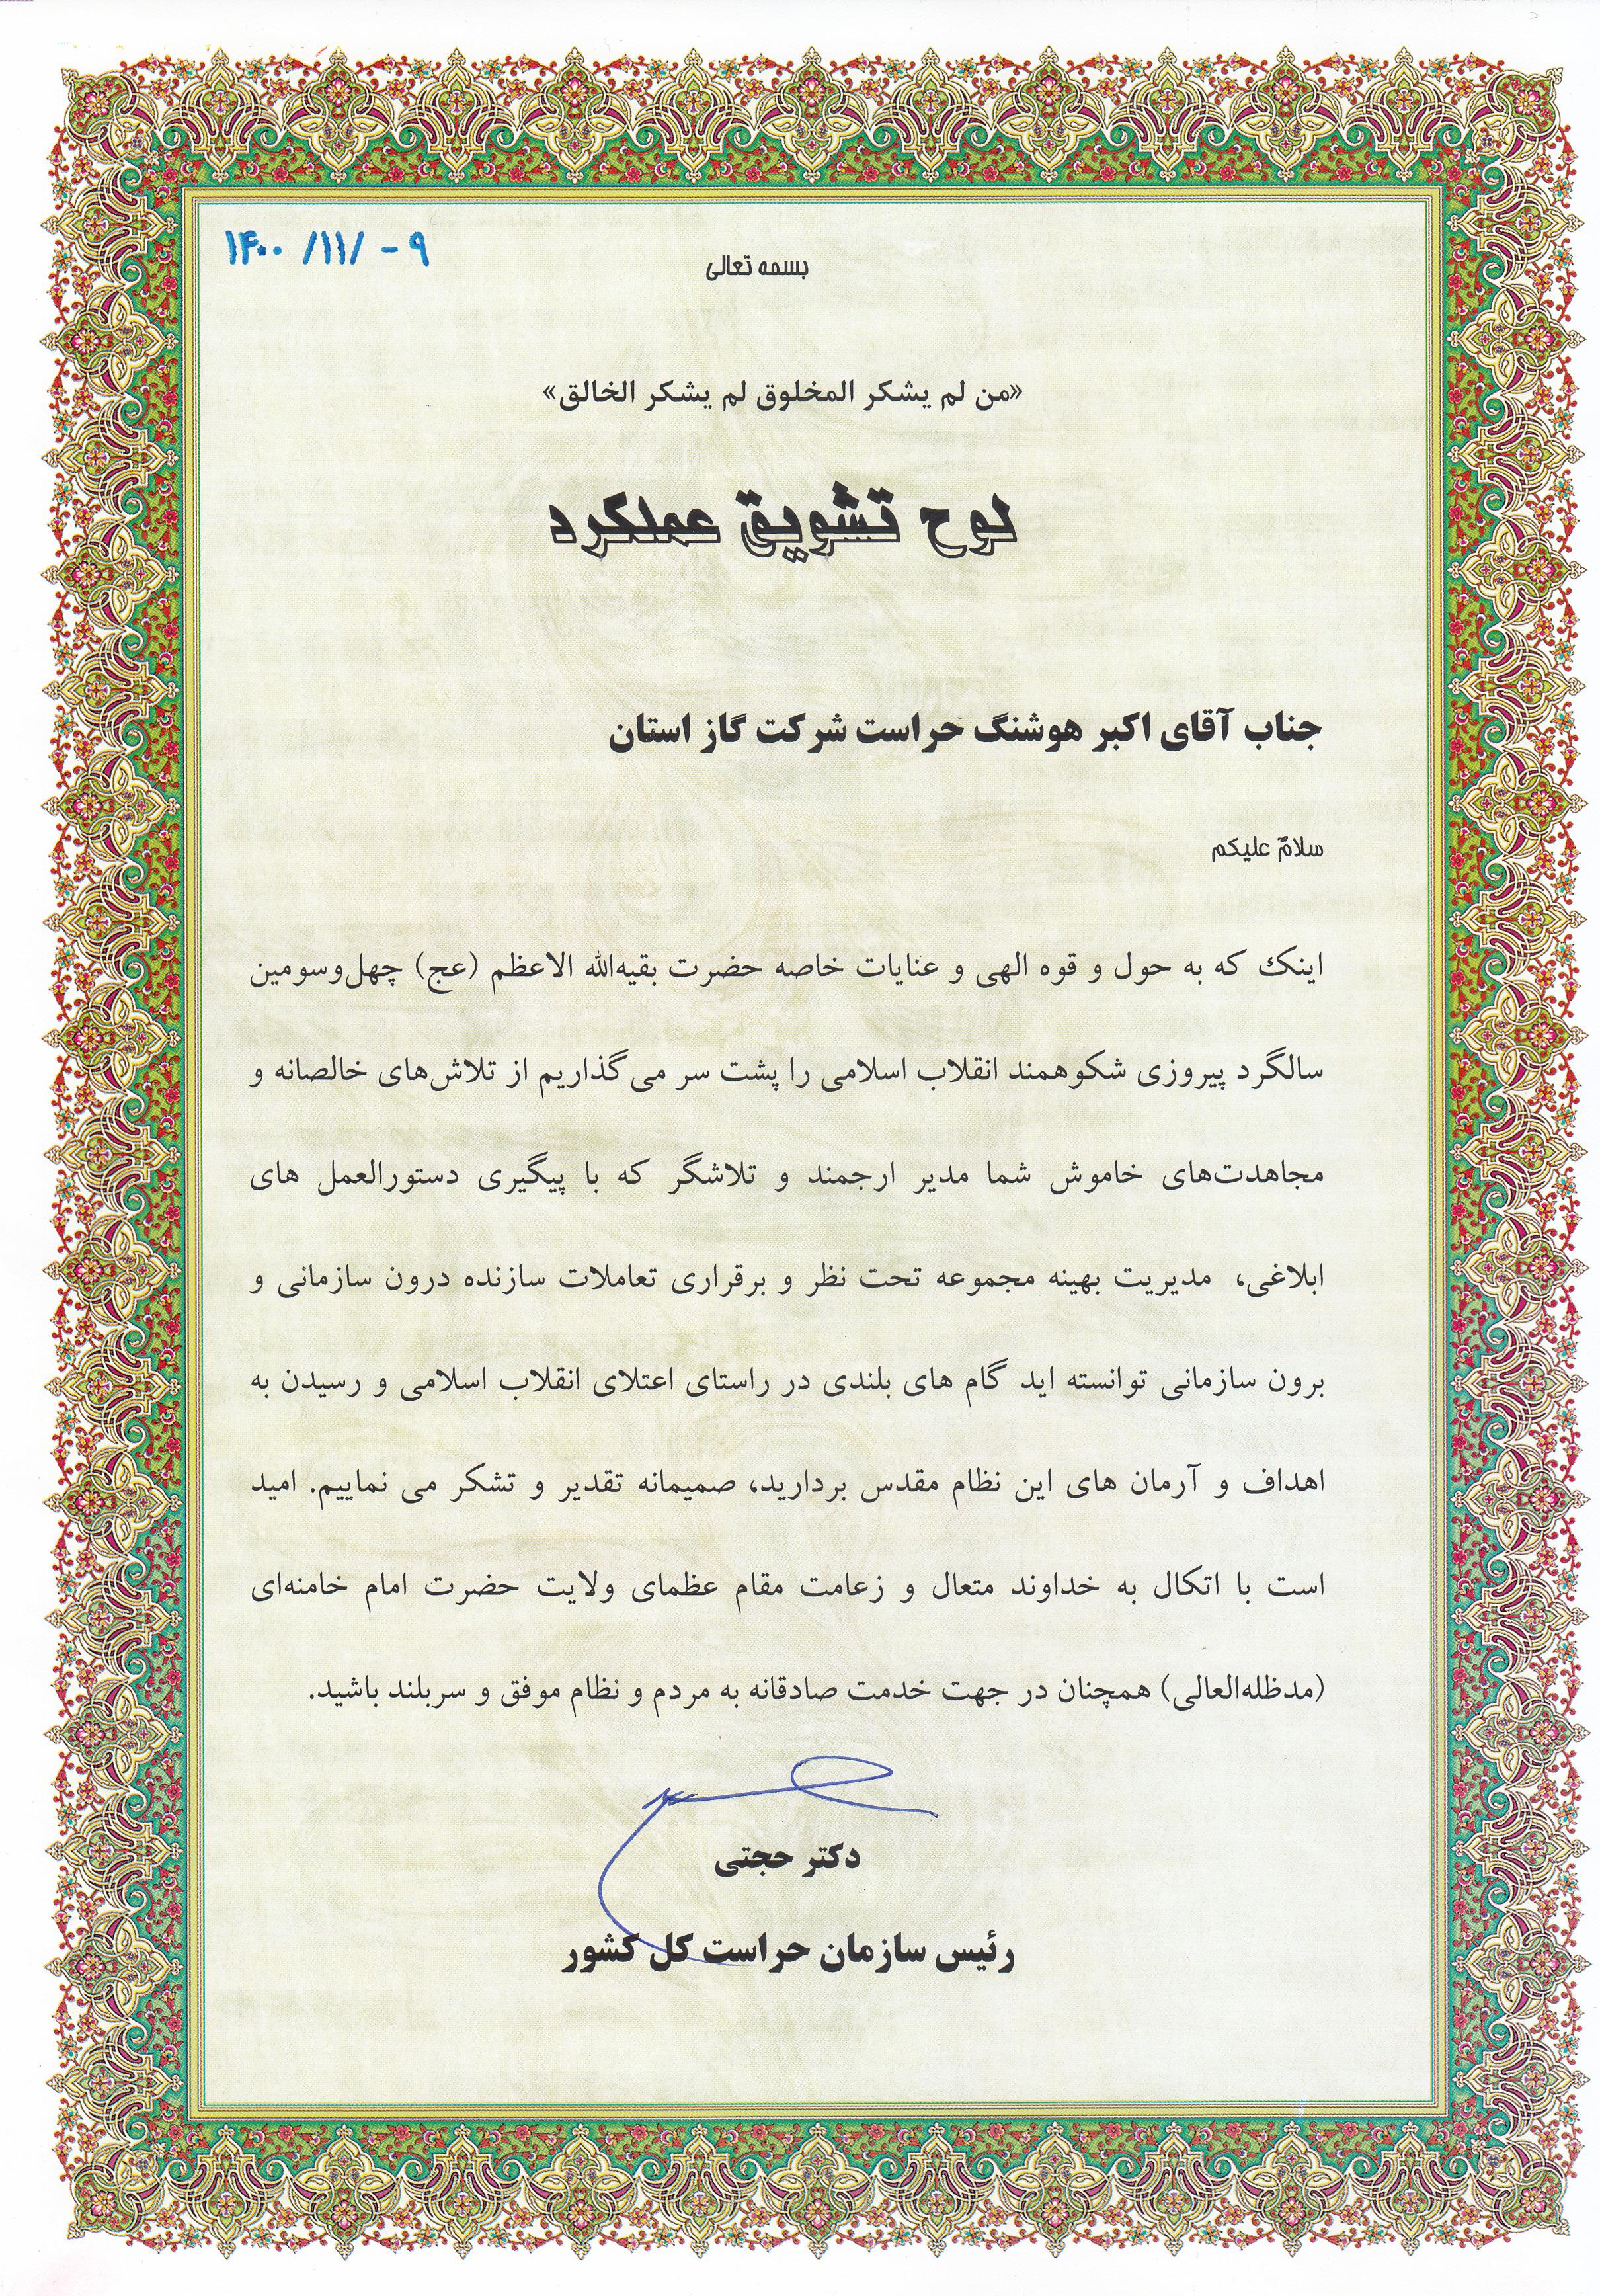 ۱۴۰۰ /۱۱/ -۹
بسمه تعالی
«من لم یشکر المخلوق لم یشکر الخالق»
لوح تشویق عملکرد
جناب آقای اکبر هوشنگ حراست شرکت گاز استان
سلامٌ علیکم
اینک که به حول و قوه الهی و عنایات خاصه حضرت بقیه‌الله الاعظم (عج) چهل‌وسومین
سالگرد پیروزی شکوهمند انقلاب اسلامی را پشت سر می‌گذاریم از تلاش‌های خالصانه و
مجاهدت‌های خاموش شما مدیر ارجمند و تلاشگر که با پیگیری دستورالعمل های
ابلاغی، مدیریت بهینه مجموعه تحت نظر و برقراری تعاملات سازنده درون سازمانی و
برون سازمانی توانسته اید گام های بلندی در راستای اعتلای انقلاب اسلامی و رسیدن به
اهداف و آرمان های این نظام مقدس بردارید، صمیمانه تقدیر و تشکر می نماییم. امید
است با اتکال به خداوند متعال و زعامت مقام عظمای ولایت حضرت امام خامنه‌ای
(مدظله‌العالی) همچنان در جهت خدمت صادقانه به مردم و نظام موفق و سربلند باشید.
دکتر حجتی
رئیس سازمان حراست کل کشور